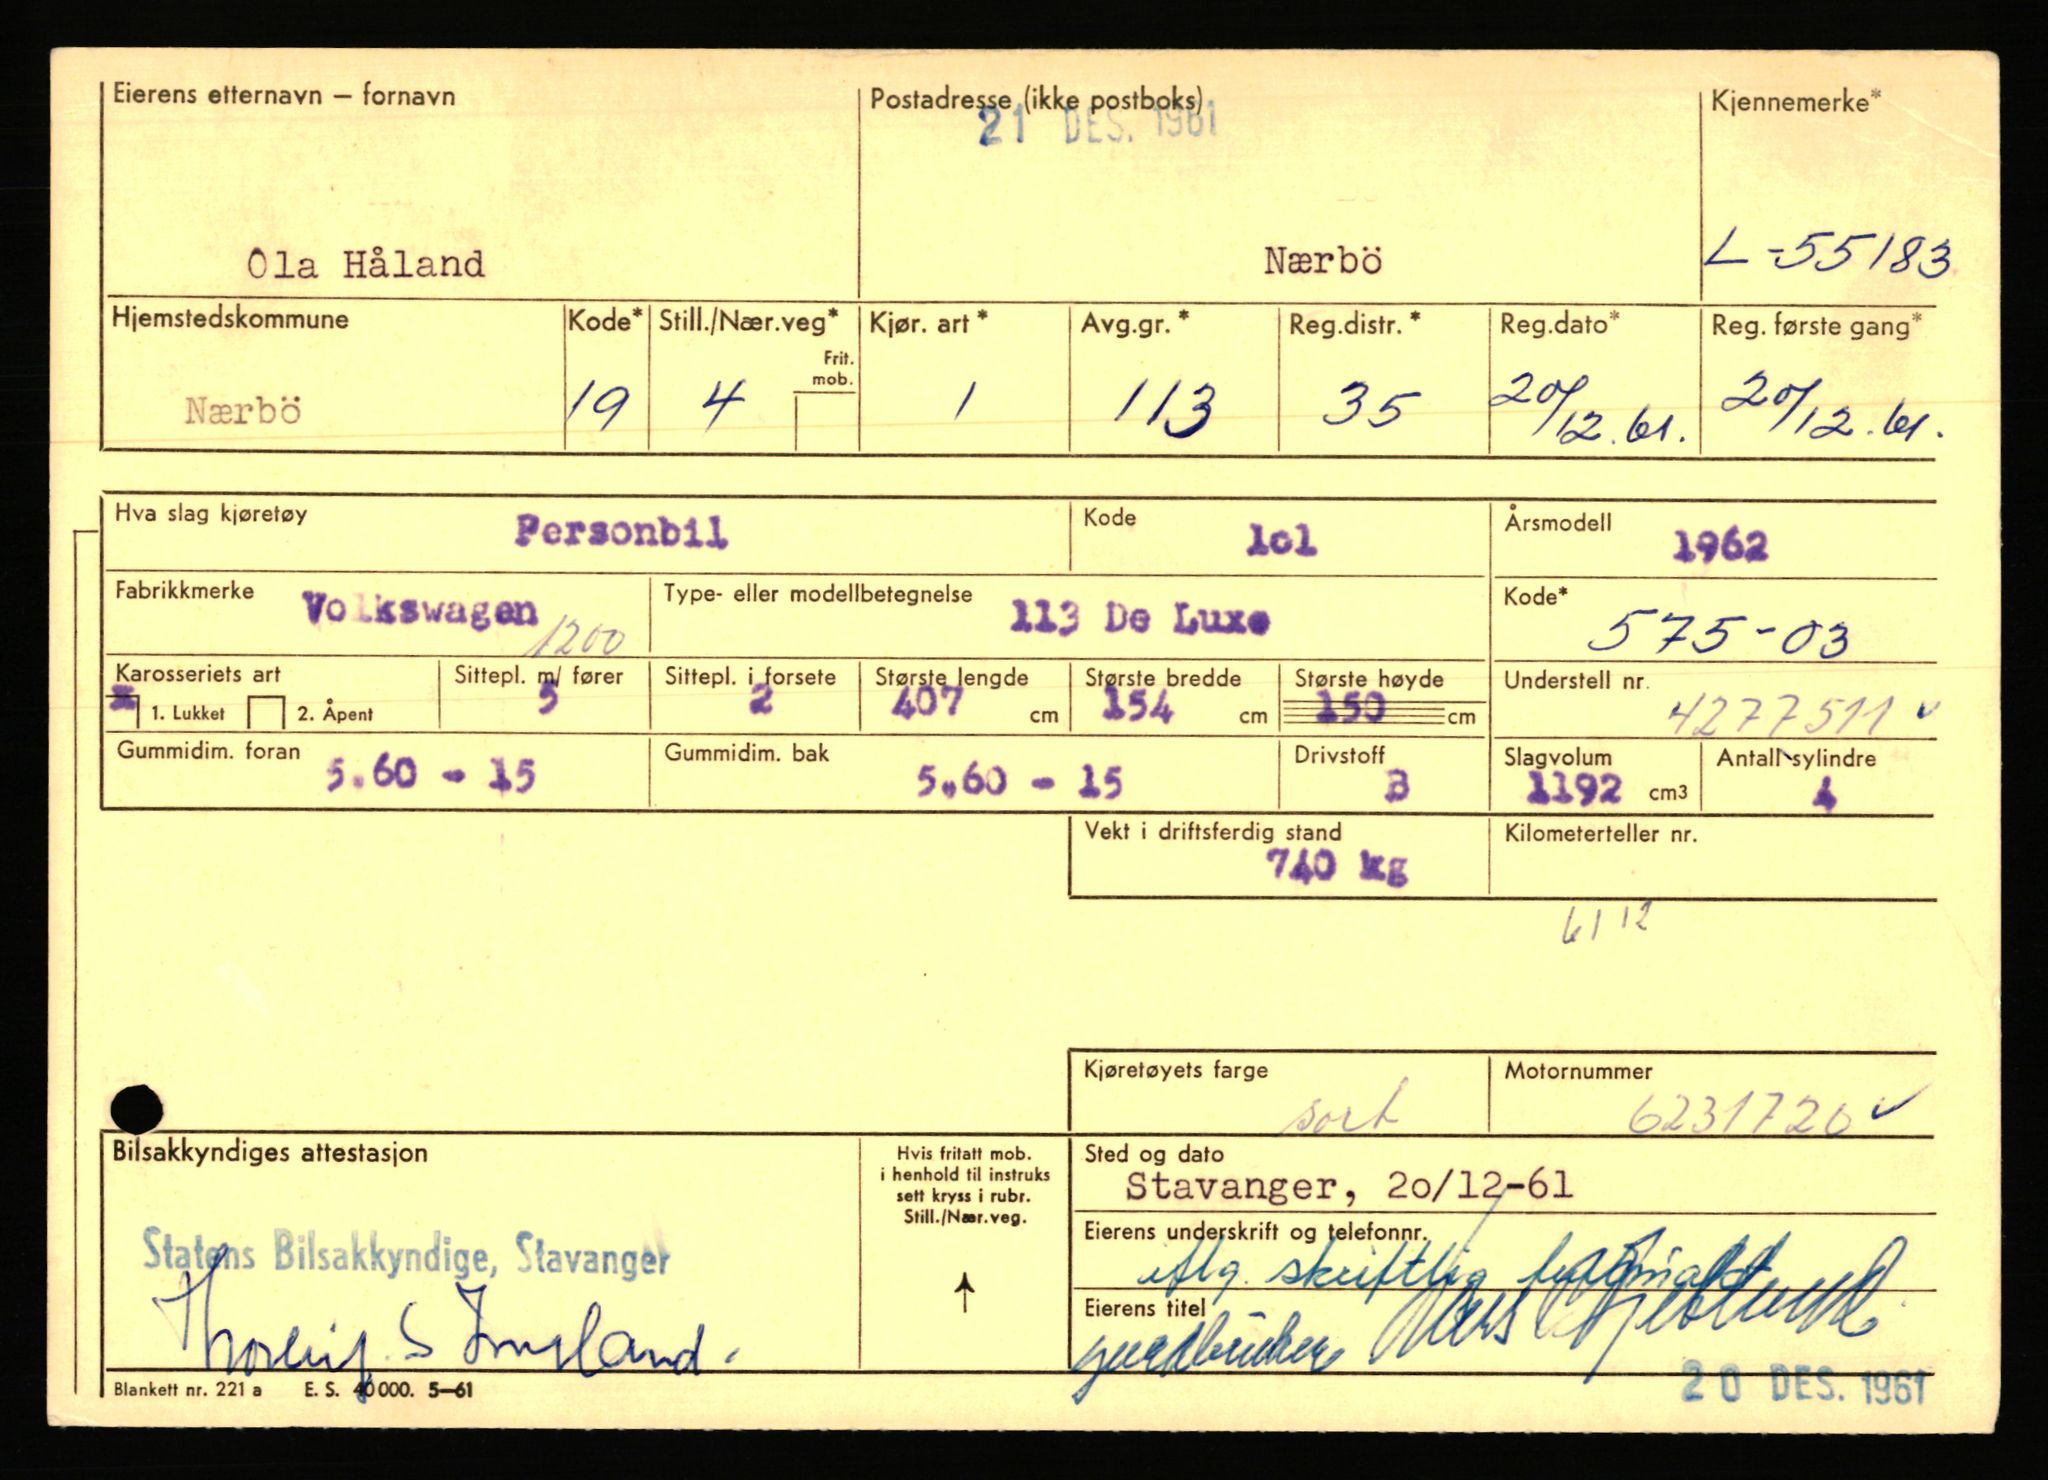 Eierens etternavn – fornavn
Postadresse (ikke postboks)
Kjennemerke*
21 DES. 1961
Ola Håland
Nærbö
L-55183
Hjemstedskommune
Kode*
Still./Nær.veg*
Frit. mob.
Kjør. art*
Avg.gr.*
Reg.distr.*
Reg.dato*
Reg. første gang*
Nærbö
19
4
1
113
35
20/12.61.
20/12.61.
Hva slag kjøretøy
Personbil
Kode
1o1
Årsmodell
1962
Fabrikkmerke
Volkswagen
1200
Type- eller modellbetegnelse
113 De Luxe
Kode*
575-03
Karosseriets art
x 1. Lukket 2. Åpent
Sittepl. m/ fører
5
Sittepl. i forsete
2
Største lengde
407 cm
Største bredde
154 cm
Største høyde
150 cm
Understell nr.
4277511 ✓
Gummidim. foran
5.60 - 15
Gummidim. bak
5.60 - 15
Drivstoff
B
Slagvolum
1192 cm3
Antall sylindre
4
Vekt i driftsferdig stand
740 kg
Kilometerteller nr.
61 12
Kjøretøyets farge
sort
Motornummer
6231720 ✓
Bilsakkyndiges attestasjon
Statens Bilsakkyndige, Stavanger
Hvis fritatt mob.
i henhold til instruks
sett kryss i rubr.
Still./Nær.veg.
Sted og dato
Stavanger, 2o/12-61
Eierens underskrift og telefonnr.
iflg. skriftlig
Eierens titel
gardbruker
20 DES. 1961
Blankett nr. 221 a E. S. 40 000. 5–61